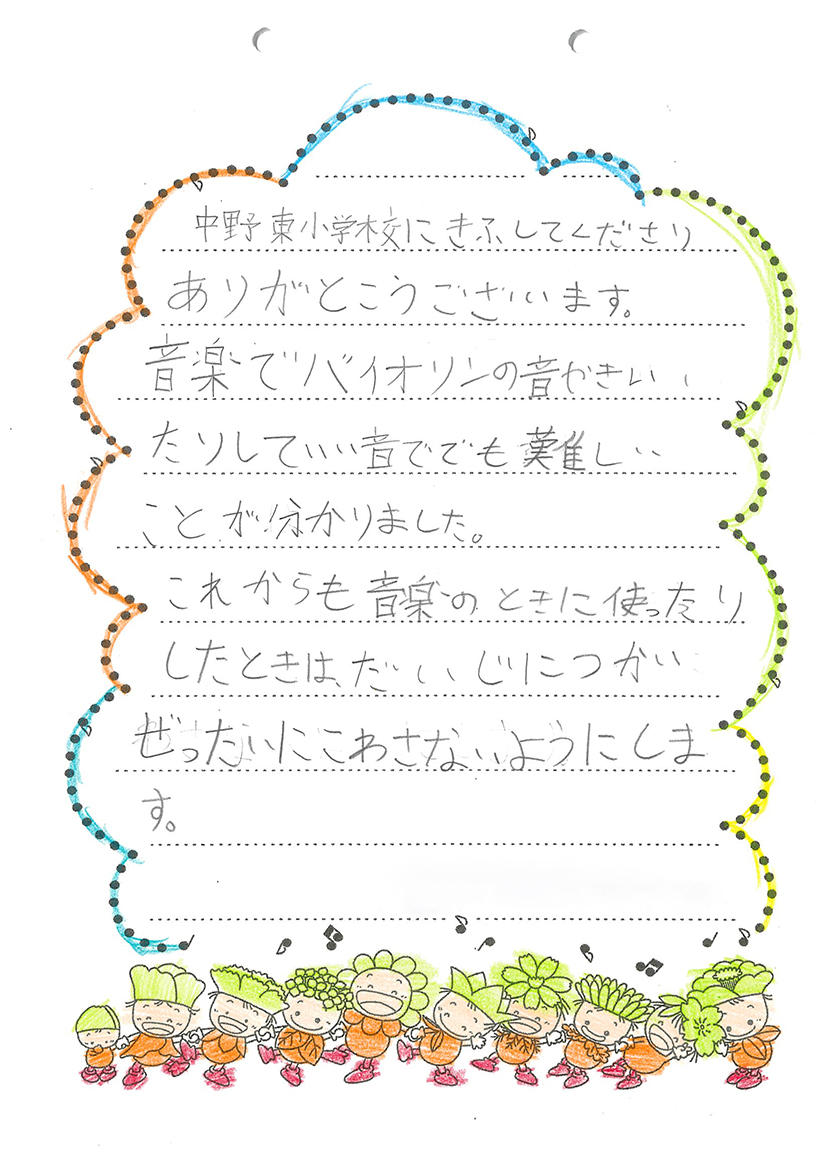 中野東小学校にきふしてくださり
ありがとこうございます。
音楽でバイオリンの音かきいい
たりしていい音ででも難しい
ことが分かりました。
これからも音楽のときに使ったり
したときは、だいじりにつかい
ぜったいにこわさないようにしま
す。